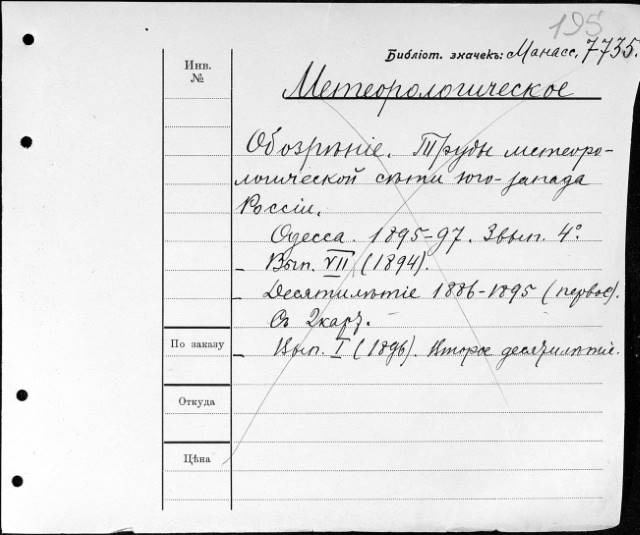 195
Библіот. значекъ: Манасс. 7735.
Инв.
№
Метеорологическое
Обозрѣніе. Труды метеоро-
логической сѣти юго-запада
Россіи.
Одесса. 1895-97. 3 вып. 4º.
- Вып. VII (1894).
- Десятилѣтіе 1886-1895 (первое).
Съ 2 карт.
По заказу
- Вып. I (1896). Второе десятилѣтіе.
Откуда
Цѣна